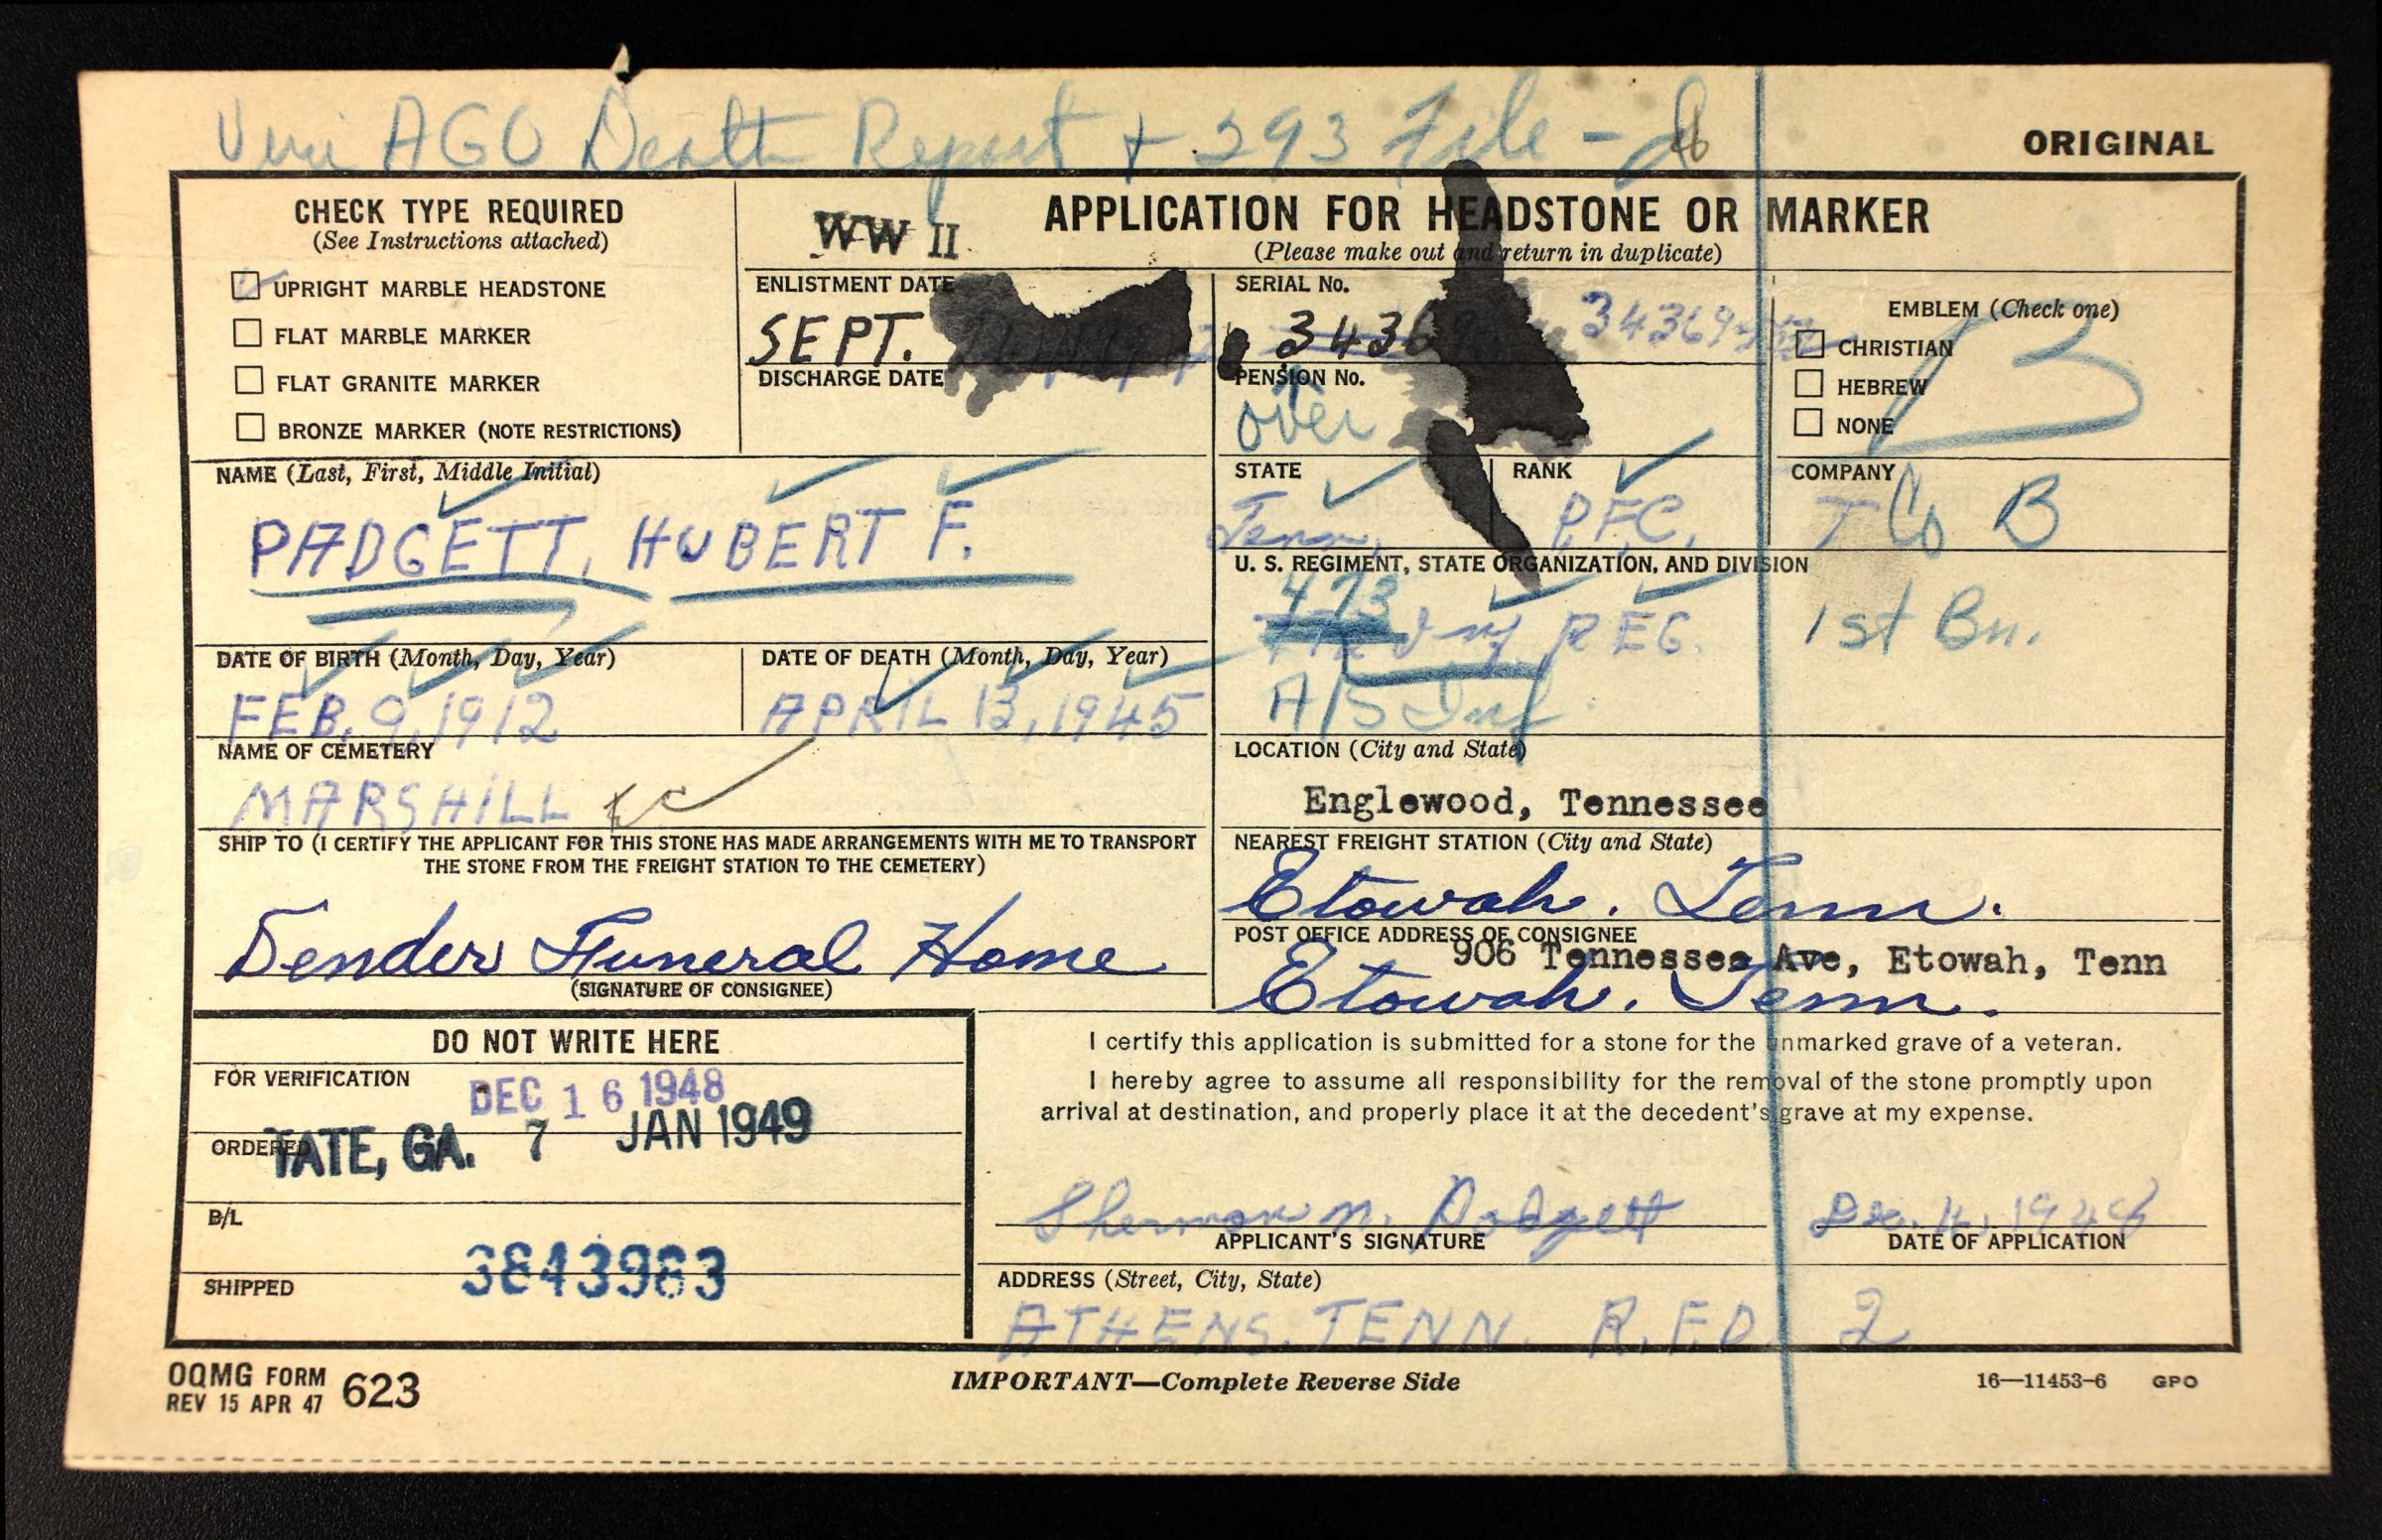 Veri AGO Death Report + 293 File -
ORIGINAL
CHECK TYPE REQUIRED
(See Instructions attached)
UPRIGHT MARBLE HEADSTONE
FLAT MARBLE MARKER
FLAT GRANITE MARKER
BRONZE MARKER (NOTE RESTRICTIONS)
WW II
APPLICATION FOR HEADSTONE OR MARKER
(Please make out and return in duplicate)
ENLISTMENT DATE
SEPT.
DISCHARGE DATE
SERIAL No.
PENSION No.
over
EMBLEM (Check one)
CHRISTIAN
HEBREW
NONE
NAME (Last, First, Middle Initial)
PADGETT, HUBERT F.
STATE
Tenn.
RANK
P.F.C.
COMPANY
Co B
U. S. REGIMENT, STATE ORGANIZATION, AND DIVISION
473 Inf REG. 1st Bn.
A/S Inf
DATE OF BIRTH (Month, Day, Year)
FEB. 9, 1912
DATE OF DEATH (Month, Day, Year)
APRIL 13, 1945
NAME OF CEMETERY
MARSHILL
LOCATION (City and State)
Englewood, Tennessee
SHIP TO (I CERTIFY THE APPLICANT FOR THIS STONE HAS MADE ARRANGEMENTS WITH ME TO TRANSPORT
THE STONE FROM THE FREIGHT STATION TO THE CEMETERY)
Funeral Home
(SIGNATURE OF CONSIGNEE)
NEAREST FREIGHT STATION (City and State)
Etowah. Tenn.
POST OFFICE ADDRESS OF CONSIGNEE
906 Tennessee Ave, Etowah, Tenn
Etowah. Tenn.
DO NOT WRITE HERE
FOR VERIFICATION
DEC 16 1948
ORDERED
TATE, GA. 7 JAN 1949
B/L
3843983
SHIPPED
I certify this application is submitted for a stone for the unmarked grave of a veteran.
I hereby agree to assume all responsibility for the removal of the stone promptly upon
arrival at destination, and properly place it at the decedent's grave at my expense.
Sherman N. Padgett
APPLICANT'S SIGNATURE
DATE OF APPLICATION
ADDRESS (Street, City, State)
ATHENS. TENN. R.F.D. 2
OQMG FORM 623
REV 15 APR 47
IMPORTANT—Complete Reverse Side
16—11453-6 GPO